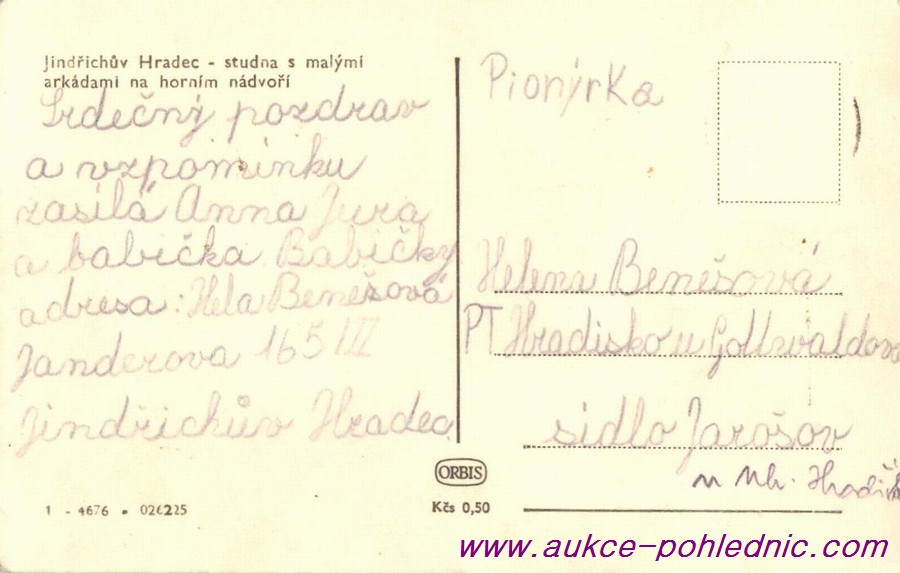 Jindřichův Hradec - studna s malými
arkádami na horním nádvoří
Srdečný pozdrav
a vzpomínku
zasílá Anna Jura
a babička Babičky
adresa: Hela Benešová
Janderova 165/III
Jindřichův Hradec
Pionýrka
Helena Benešová
PT Hradisko u Gottwaldova
sídlo Jarošov
u Uh. Hradiš
ORBIS
1 - 4676 • 026225
Kčs 0,50
www.aukce-pohlednic.com